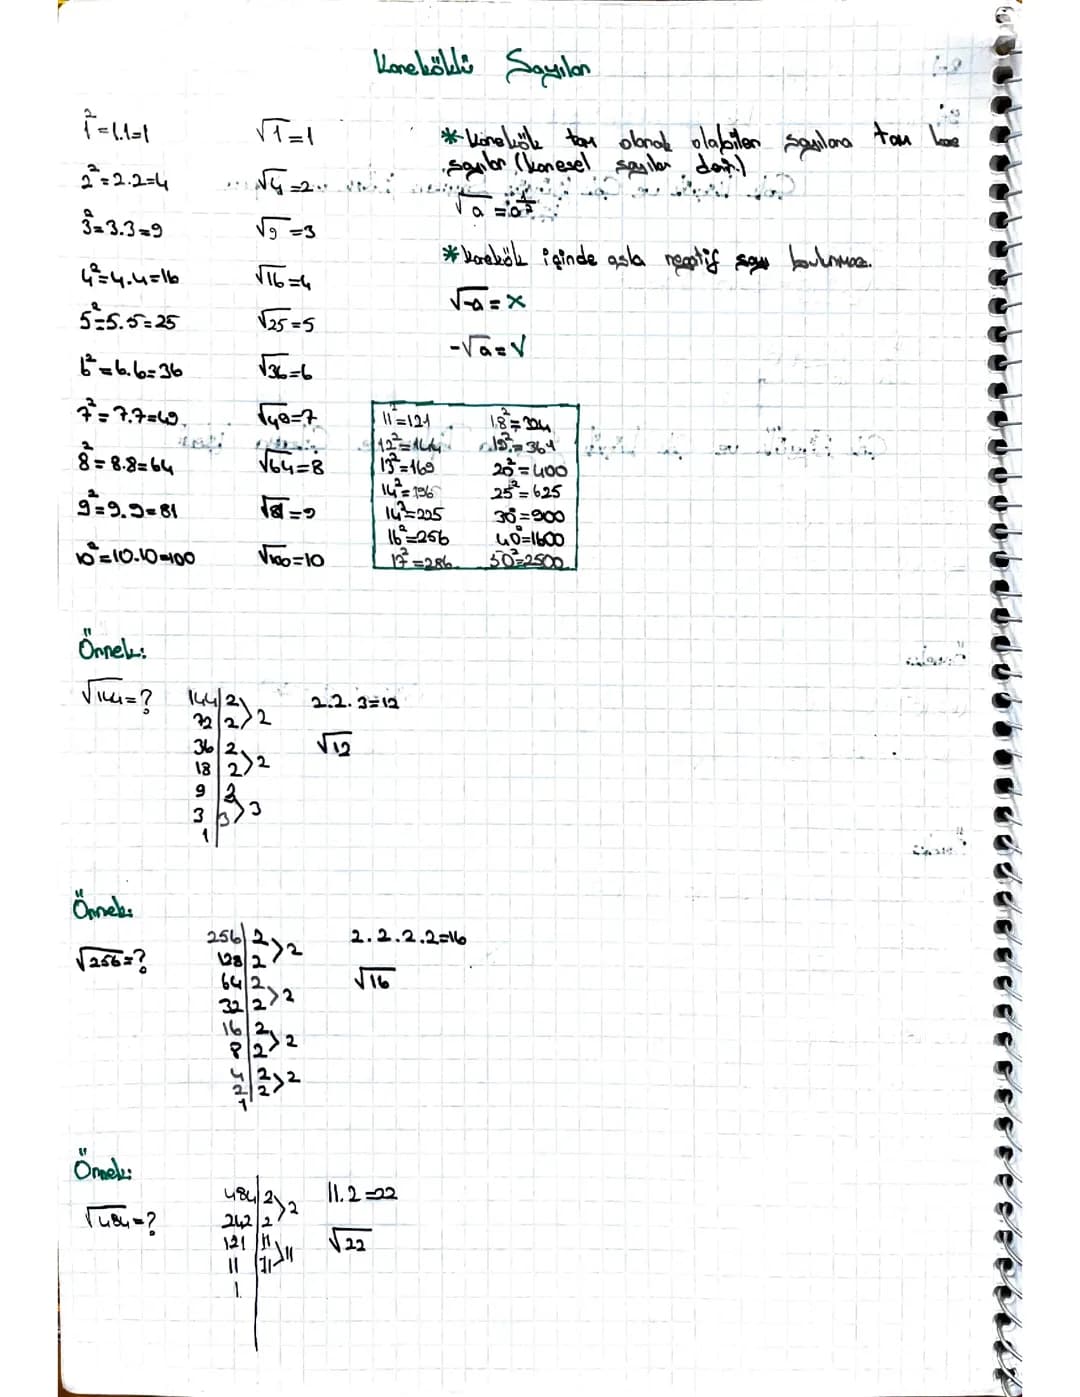 Kareköklü Sayılar
1²=1.1=1
√1=1
2²=2.2=4
√4=2
3²=3.3=9
√9=3
4²=4.4=16
√16=4
5²=5.5=25
√25=5
6²=6.6=36
√36=6
7²=7.7=49
√49=7
8²=8.8=64
√64=8
9²=9.9=81
√81=9
10²=10.10=100
√100=10
*Karekök tam olarak olabilen sayılara tam kare
sayılar (karesel sayılar denir.)
√a=a^½
*Karekök içinde asla negatif sayı bulunmaz.
√-a=x
-√a=√
11²=121
18²=324
12²=144
19²=361
13²=169
20²=400
14²=196
25²=625
14²=225
30²=900
16²=256
40²=1600
17²=286
50²=2500
Örnek:
√144=?
144|2
72|2>2
36|2
18|2>2
9|3
3|3>3
1
2.2.3=12
√12
Örnek:
√256=?
256|2
128|2>2
64|2
32|2>2
16|2
8|2>2
4|2
2|2>2
1
2.2.2.2=16
√16
Örnek:
√484=?
484|2
242|2>2
121|11
11|11>11
1
11.2=22
√22